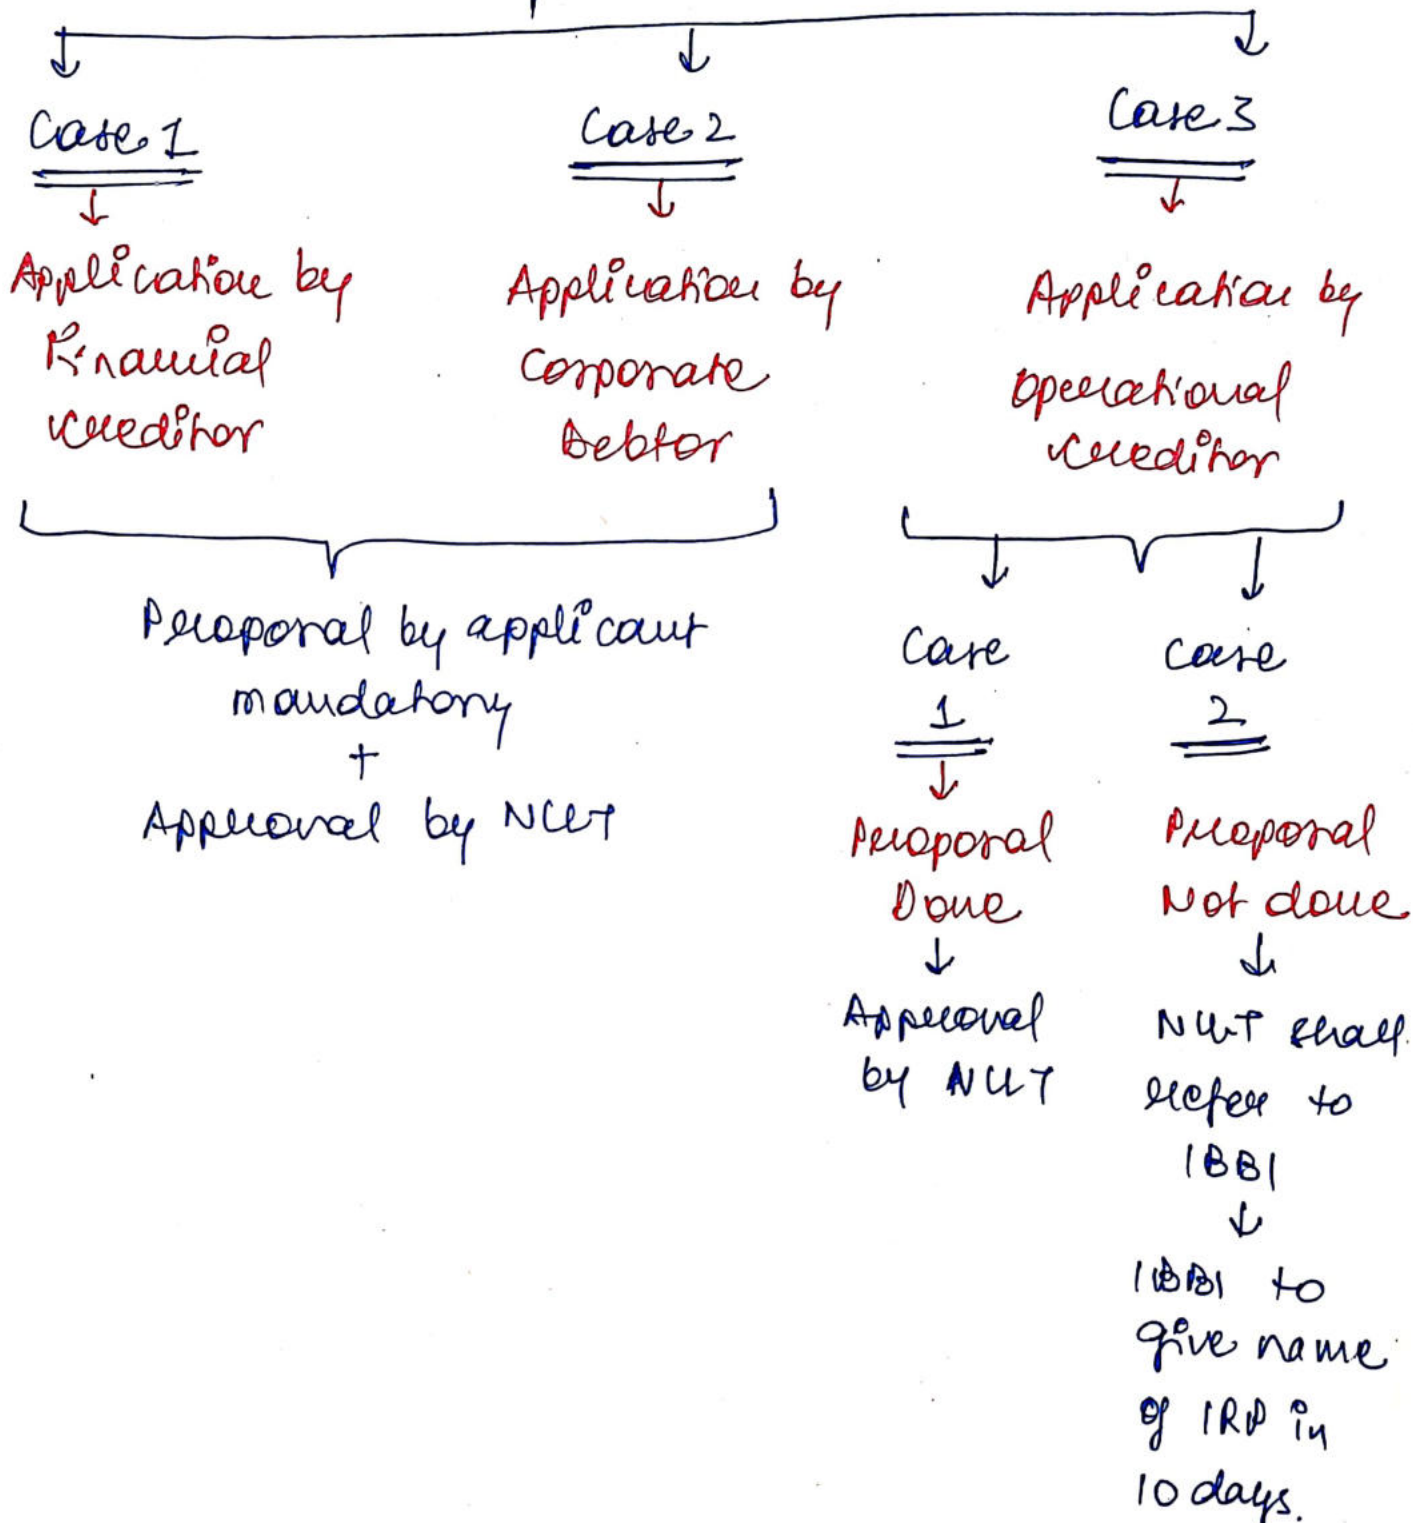 Case 1
Application by
Financial
Creditor
Case 2
Application by
Corporate
Debtor
Case 3
Application by
Operational
Creditor
Proposal by applicant
mandatory
+
Approval by NCLT
Case
1
Proposal
Done
Approval
by NCLT
Case
2
Proposal
Not done
NCLT shall
refer to
IBBI
IBBI to
give name
of IRP in
10 days.